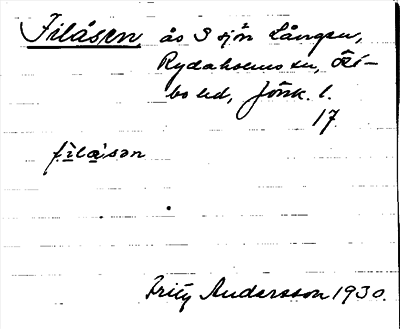 Filåsen, ås S sjön Lången,
Rydaholms sn, Öst-
bo hd, Jönk. l.
17.
filåsən
Fritz Andersson 1930.